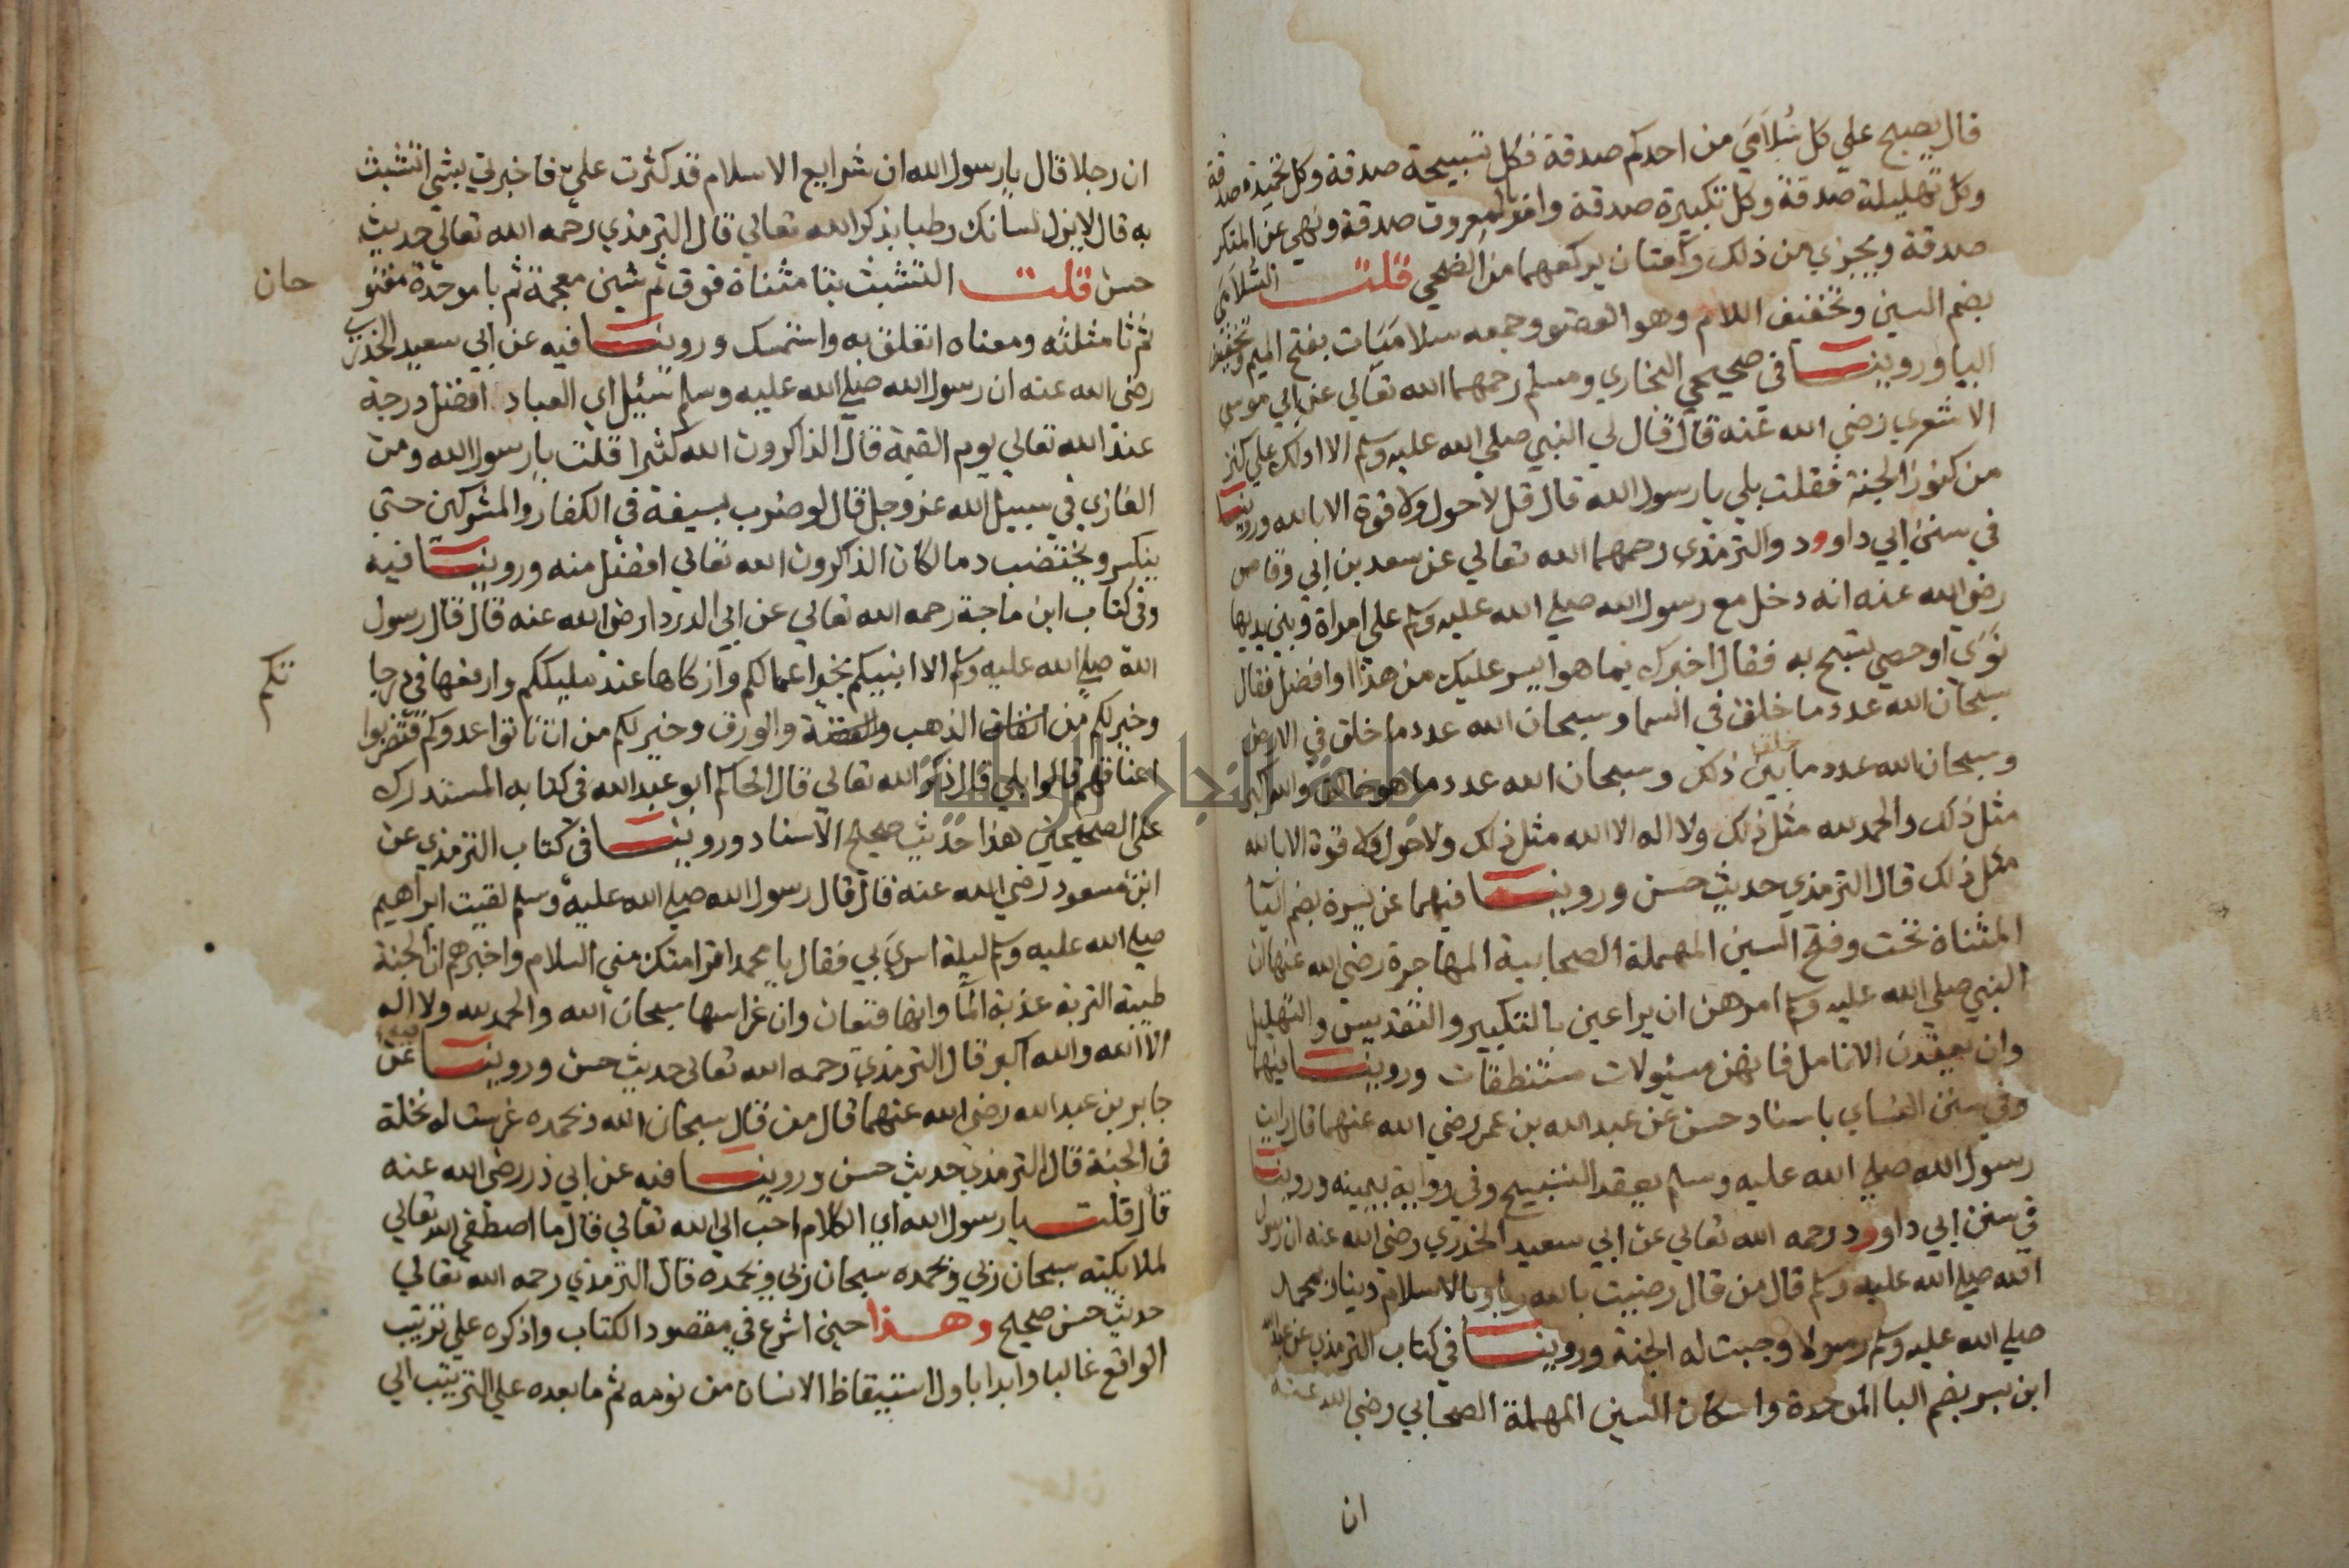 قال يصبح علي كل سُلَامَي من احدكم صدقة فكل تسبيحة صدقة وكل تحميدة صدقة
وكل تهليلة صدقة وكل تكبيرة صدقة وامر بالمعروف صدقة ونهي عن المنكر
صدقة ويجزي من ذلك ركعتان يركعهما من الضحي قلت السُّلامَي
بضم السين وتخفيف اللام وهو العضو وجمعه سلامَيَات بفتح الميم وتخفيف
اليا وروينا في صحيحي البخاري ومسلم رحمهما الله تعالي عن ابي موسي
الاشعري رضي الله عنه قال قال لي النبي صلي الله عليه وسلم الا ادلك علي كنز
من كنوز الجنة فقلت بلي يا رسول الله قال قل لا حول ولا قوة الا بالله وروينا
في سنن ابي داوود والترمذي رحمهما الله تعالي عن سعد بن ابي وقاص
رضي الله عنه انه دخل مع رسول الله صلي الله عليه وسلم علي امراة وبين يديها
نَوَيً او حصي تسبح به فقال اخبرك بما هو ايسر عليك من هذا او افضل فقال
سبحان الله عدد ما خلق في السما وسبحان الله عدد ما خلق في الارض
وسبحان الله عدد ما بين ذلك وسبحان الله عدد ما هو خالق والله اكبر
مثل ذلك والحمد لله مثل ذلك ولا اله الا الله مثل ذلك ولا حول ولا قوة الا بالله
مثل ذلك قال الترمذي حديث حسن وروينا فيهما عن يسرة بضم اليا
المثناة تحت وفتح السين المهملة الصحابية المهاجرة رضي الله عنها ان
النبي صلي الله عليه وسلم امرهن ان يراعين بالتكبير والتقديس والتهليل
وان يعقدن الانامل فانهن مسئولات مستنطقات وروينا فيهما
وفي سنن النساي باسناد حسن عن عبد الله بن عمر رضي الله عنهما قال رايت
رسول الله صلي الله عليه وسلم يعقد التسبيح وفي رواية بيمينه وروينا
في سنن ابي داوود رحمه الله تعالي عن ابي سعيد الخدري رضي الله عنه ان رسول
الله صلي الله عليه وسلم قال من قال رضيت بالله ربا وبالاسلام دينا وبمحمد
صلي الله عليه وسلم رسولا وجبت له الجنة وروينا في كتاب الترمذي عن عبد الله
ابن بسر بضم البا الموحدة واسكان السين المهملة الصحابي رضي الله عنه
ان
ان رجلا قال يا رسول الله ان شرايع الاسلام قد كثرت علي فاخبرني بشي اتشبث
به قال لا يزل لسانك رطبا بذكر الله تعالي قال الترمذي رحمه الله تعالي حديث
حسن قلت التشبث بتا مثناة فوق ثم شين معجمة ثم با موحدة مفتو
حان
ثم ثا مثلثه ومعناه اتعلق به واستمسك وروينا فيه عن ابي سعيد الخدري
رضي الله عنه ان رسول الله صلي الله عليه وسلم سئيل اي العباد افضل درجة
عند الله تعالي يوم القيمة قال الذاكرون الله كثيرا قلت يا رسول الله ومن
الغازي في سبيل الله عز وجل قال لو ضرب بسيفه في الكفار والمشركين حتي
ينكسر ويختضب دما لكان الذاكرون الله تعالي افضل منه وروينا فيه
وفي كتاب ابن ماجة رحمه الله تعالي عن ابي الدردا رضي الله عنه قال قال رسول
الله صلي الله عليه وسلم الا انبيكم بخير اعمالكم وازكاها عند مليككم وارفعها في درجا
تكم
وخير لكم من انفاق الذهب والفضة والورق وخير لكم من ان تلقوا عدوكم فتضربوا
اعناقهم قالوا بلي قال ذكر الله تعالي قال الحاكم ابو عبد الله في كتابه المستدرك
علي الصحيحين هذا حديث صحيح الاسناد وروينا في كتاب الترمذي عن
ابن مسعود رضي الله عنه قال قال رسول الله صلي الله عليه وسلم لقيت ابراهيم
صلي الله عليه وسلم ليلة اسري بي فقال يا محمد اقرا امتك مني السلام واخبرهم ان الجنة
طيبة التربة عذبة الما وانها قيعان وان غراسها سبحان الله والحمد لله ولا اله
الا الله والله اكبر قال الترمذي رحمه الله تعالي حديث حسن وروينا فيه عن
جابر بن عبد الله رضي الله عنهما قال من قال سبحان الله وبحمده غرست له نخلة
في الجنة قال الترمذي حديث حسن وروينا فيه عن ابي ذر رضي الله عنه
قال قلت يا رسول الله اي الكلام احب الي الله تعالي قال ما اصطفي الله تعالي
لملايكته سبحان ربي وبحمده سبحان ربي وبحمده قال الترمذي رحمه الله تعالي
حديث حسن صحيح وهذا حين اشرع في مقصود الكتاب واذكره علي ترتيب
الواقع غالبا وابدا باول استيقاظ الانسان من نومه ثم ما بعده علي الترتيب الي